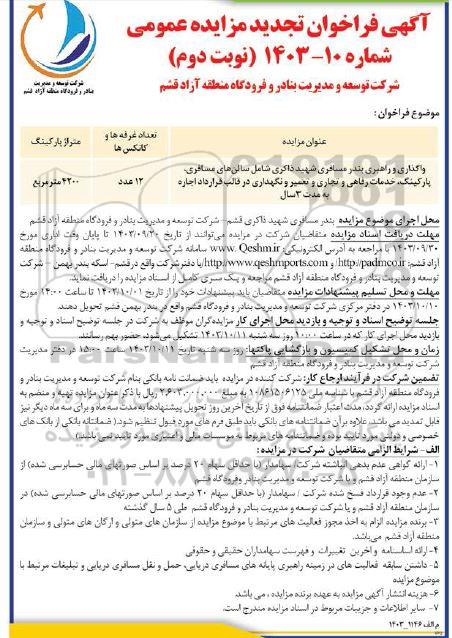 آگهی فراخوان تجدید مزایده عمومی
شماره ۱۰-۱۴۰۳ (نوبت دوم)
شرکت توسعه و مدیریت بنادر و فرودگاه منطقه آزاد قشم
شرکت توسعه و مدیریت
بنادر و فرودگاه منطقه آزاد قشم
موضوع فراخوان:
عنوان مزایده
تعداد غرفه ها و کانکس ها
متراژ پارکینگ
واگذاری و راهبری بندر مسافری شهید ذاکری شامل سالن‌های مسافری،
پارکینگ، خدمات رفاهی و تجاری و تعمیر و نگهداری در قالب قرارداد اجاره
به مدت ۳ سال
۱۲ عدد
۴۲۰۰ مترمربع
محل اجرای موضوع مزایده بندر مسافری شهید ذاکری قشم - شرکت توسعه و مدیریت بنادر و فرودگاه منطقه آزاد قشم
مهلت دریافت اسناد مزایده متقاضیان شرکت در مزایده می‌توانند از تاریخ ۱۴۰۳/۰۹/۲۰ تا پایان وقت اداری مورخ
۱۴۰۳/۰۹/۳۰ با مراجعه به آدرس الکترونیکی: www. Qeshm.ir سامانه شرکت توسعه و مدیریت بنادر و فرودگاه منطقه
آزاد قشم: http://padmco.ir و http://www.qeshmports.com/ یا دفتر شرکت واقع در قشم - اسکه بندر بهمن - شرکت
توسعه و مدیریت بنادر و فرودگاه منطقه آزاد قشم مراجعه و یک سری کامل از اسناد مزایده را دریافت نمایند.
مهلت و محل تسلیم پیشنهادات مزایده متقاضیان باید پیشنهادات خود را از تاریخ ۱۴۰۳/۱۰/۰۱ تا ساعت ۱۴:۰۰ مورخ
۱۴۰۳/۱۰/۱۰ در دفتر مرکزی شرکت توسعه و مدیریت بنادر و فرودگاه قشم واقع در بندر بهمن قشم تحویل دهند.
جلسه توضیح اسناد و توجیه و بازدید محل اجرای کار مزایده‌گران موظف به شرکت در جلسه توضیح اسناد و توجیه و
بازدید محل اجرای کار که در ساعت ۱۰:۰۰ روز سه شنبه ۱۴۰۳/۱۰/۱۱ تشکیل می‌شود، حضور بهم رسانند.
زمان و محل تشکیل کمیسیون و بازگشایی پاکتها: روز سه شنبه تاریخ ۱۴۰۳/۱۰/۱۱ ساعت ۱۵:۰۰ در دفتر مدیریت
شرکت توسعه و مدیریت بنادر و فرودگاه منطقه آزاد قشم
تضمین شرکت در فرآیند ارجاع کار: شرکت کننده در مزایده باید ضمانت نامه بانکی بنام شرکت توسعه و مدیریت بنادر و
فرودگاه منطقه آزاد قشم با شناسه ملی ۱۰۸۶۱۵۰۶۱۲۵ به مبلغ ۲,۶۰۳,۰۰۰,۰۰۰ ریال با ذکر عنوان مزایده تهیه و منضم به
اسناد مزایده ارائه گردد. مدت اعتبار ضمانتنامه فوق از تاریخ آخرین روز تحویل پیشنهادها به مدت سه ماه و برای سه ماه دیگر نیز
قابل تمدید می باشد. علاوه برآن ضمانتنامه های بانکی باید طبق فرم های مورد قبول تنظیم شود. (ضمانتنامه بانکی از بانک های
خصوصی و دولتی مورد تایید بوده و ضمانتنامه های مربوط به موسسات مالی و اعتباری مورد تایید نمی باشد)
الف - شرایط الزامی متقاضیان شرکت در مزایده:
۱- ارائه گواهی عدم بدهی انباشته شرکت/ سهامدار (با حداقل سهام ۲۰ درصد بر اساس صورتهای مالی حسابرسی شده) از
سازمان منطقه آزاد قشم و یا شرکت توسعه و مدیریت بنادر و فرودگاه قشم
۲- عدم وجود قرارداد فسخ شده شرکت / سهامدار (با حداقل سهام ۲۰ درصد بر اساس صورتهای مالی حسابرسی شده) در
سازمان منطقه آزاد قشم و یا شرکت توسعه و مدیریت بنادر و فرودگاه قشم طی ۵ سال گذشته
۳- برنده مزایده الزام به اخذ مجوز فعالیت های مرتبط با موضوع مزایده از سازمان های متولی و ارگان های متولی و سازمان
منطقه آزاد قشم می‌باشد.
۴- ارائه اساسنامه و آخرین تغییرات و فهرست سهامداران حقیقی و حقوقی
۵- داشتن سابقه فعالیت های در زمینه راهبری پایانه های مسافری دریایی، حمل و نقل مسافری دریایی و تبلیغات مرتبط با
موضوع مزایده
۶- هزینه انتشار آگهی مزایده به عهده برنده مزایده ، می باشد.
۷- سایر اطلاعات و جزییات مربوط در اسناد مزایده مندرج است.
م الف ۱۱۴۶_۱۴۰۳